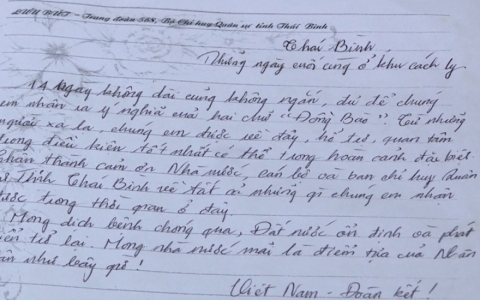 LIÊN KẾT - Trung đoàn 568, Bộ Chỉ huy Quân sự tỉnh Thái Bình
Thái Bình
Những ngày cuối cùng ở khu cách ly
14 ngày không dài cũng không ngắn, đủ để chúng
em nhận ra ý nghĩa của hai chữ "Đồng Bào". Từ những
người xa lạ, chúng em được về đây, hỗ trợ, quan tâm
trong điều kiện tốt nhất có thể trong hoàn cảnh đặc biệt.
chân thành cảm ơn Nhà nước, cán bộ và ban chỉ huy quân
sự Tỉnh Thái Bình về tất cả những gì chúng em nhận
được trong thời gian ở đây.
Mong dịch bệnh chóng qua, Đất nước ổn định và phát
triển trở lại. Mong nhà nước mãi là điểm tựa của Nhân
dân như bây giờ!
Việt Nam - Đoàn kết!